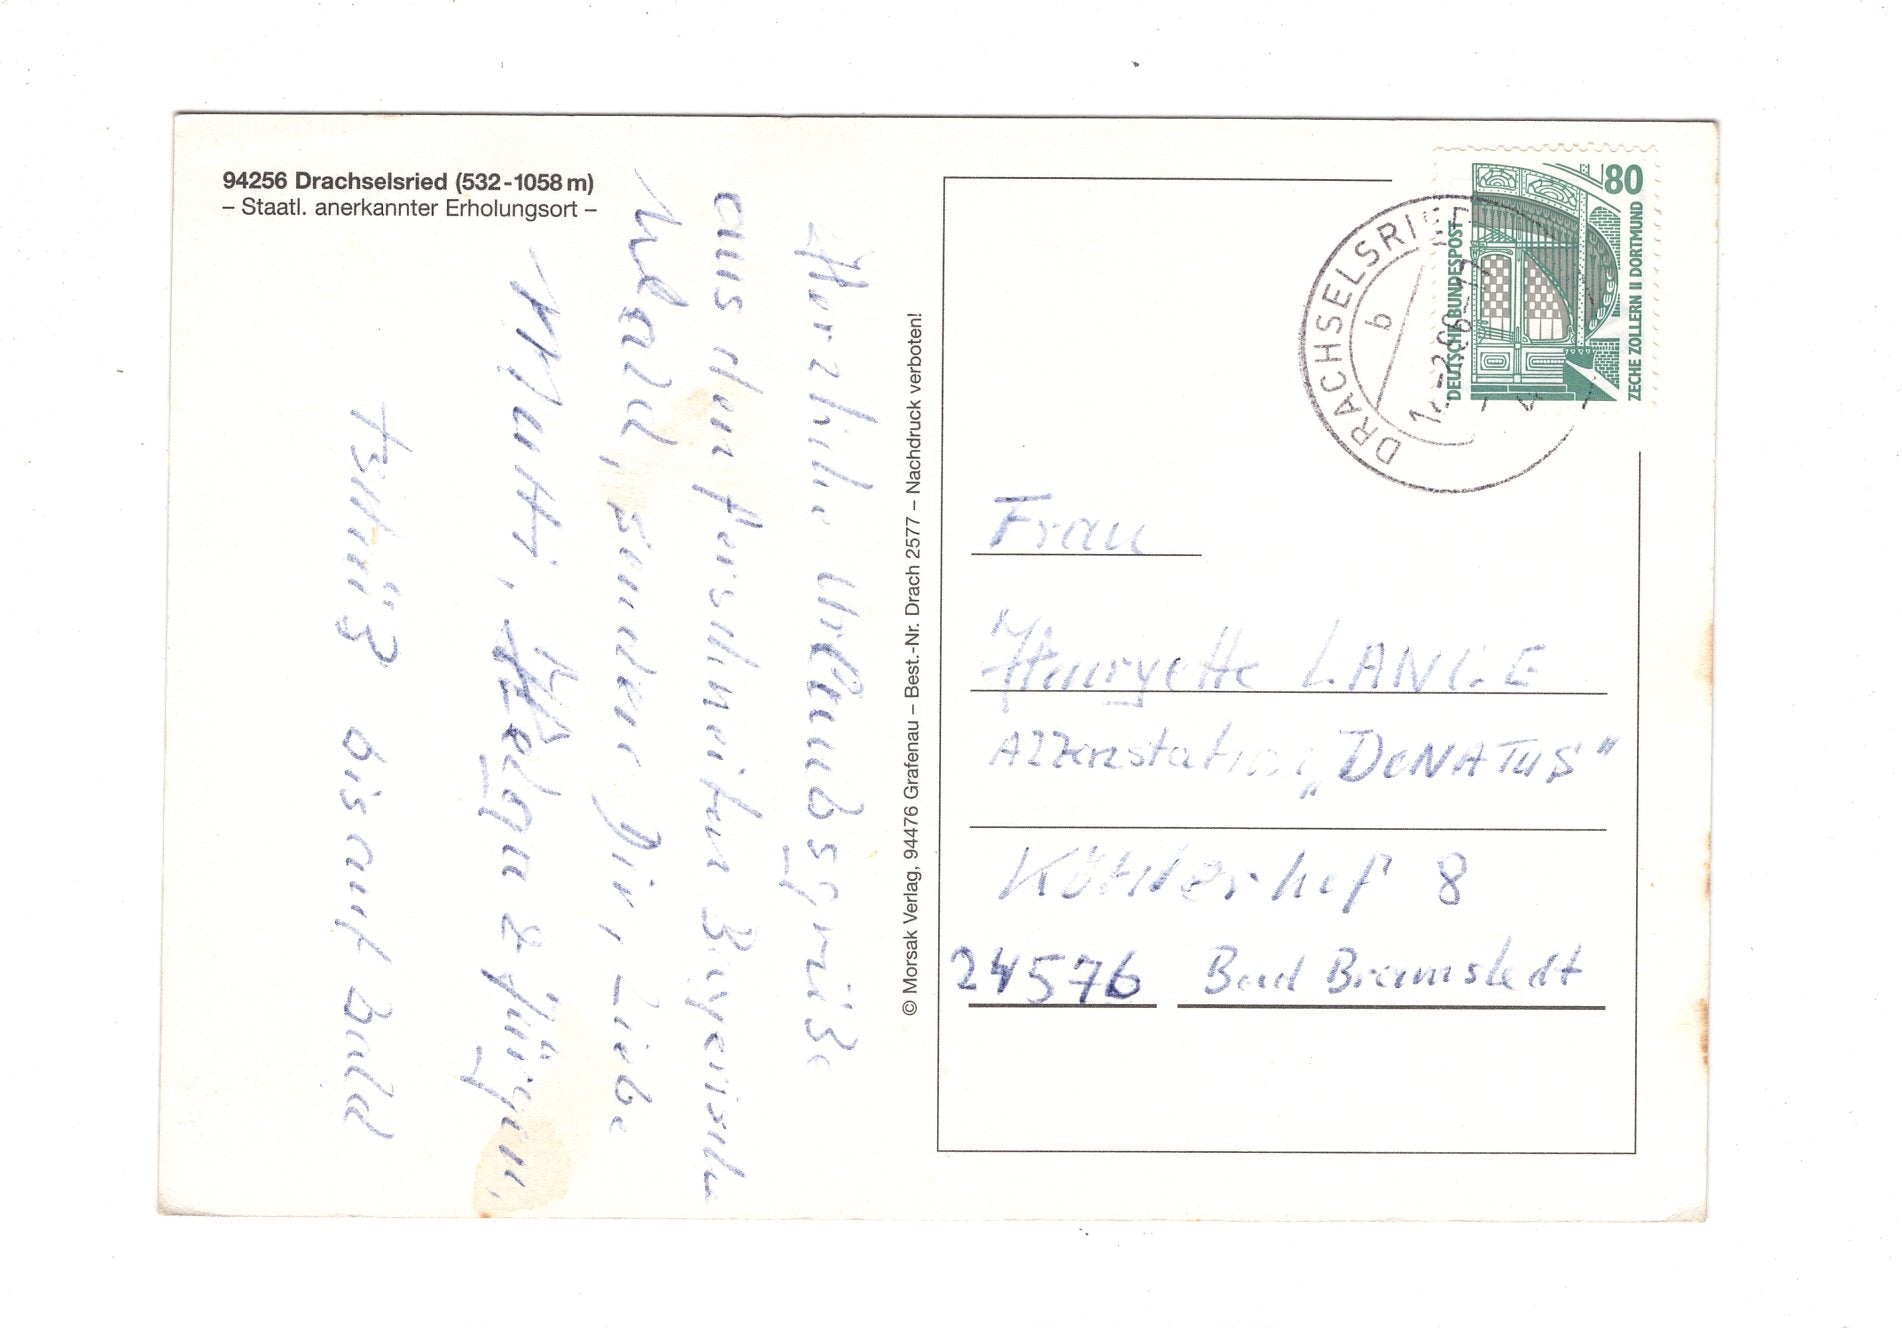 94256 Drachselsried (532-1058 m)
– Staatl. anerkannter Erholungsort –
Herzliche Urlaubsgrüße
aus dem verschneiten Bayerisch
Wald, senden Dir, Liebe
Mutti, Helga & Jürgen,
Tschüß bis auf bald
© Morsak Verlag, 94476 Grafenau – Best.-Nr. Drach 2577 – Nachdruck verboten!
80
DEUTSCHE BUNDESPOST
ZECHE ZOLLERN II DORTMUND
DRACHSELSRIED
b
Frau
LANGE
"DONATUS"
8
24576 Bad Bramstedt